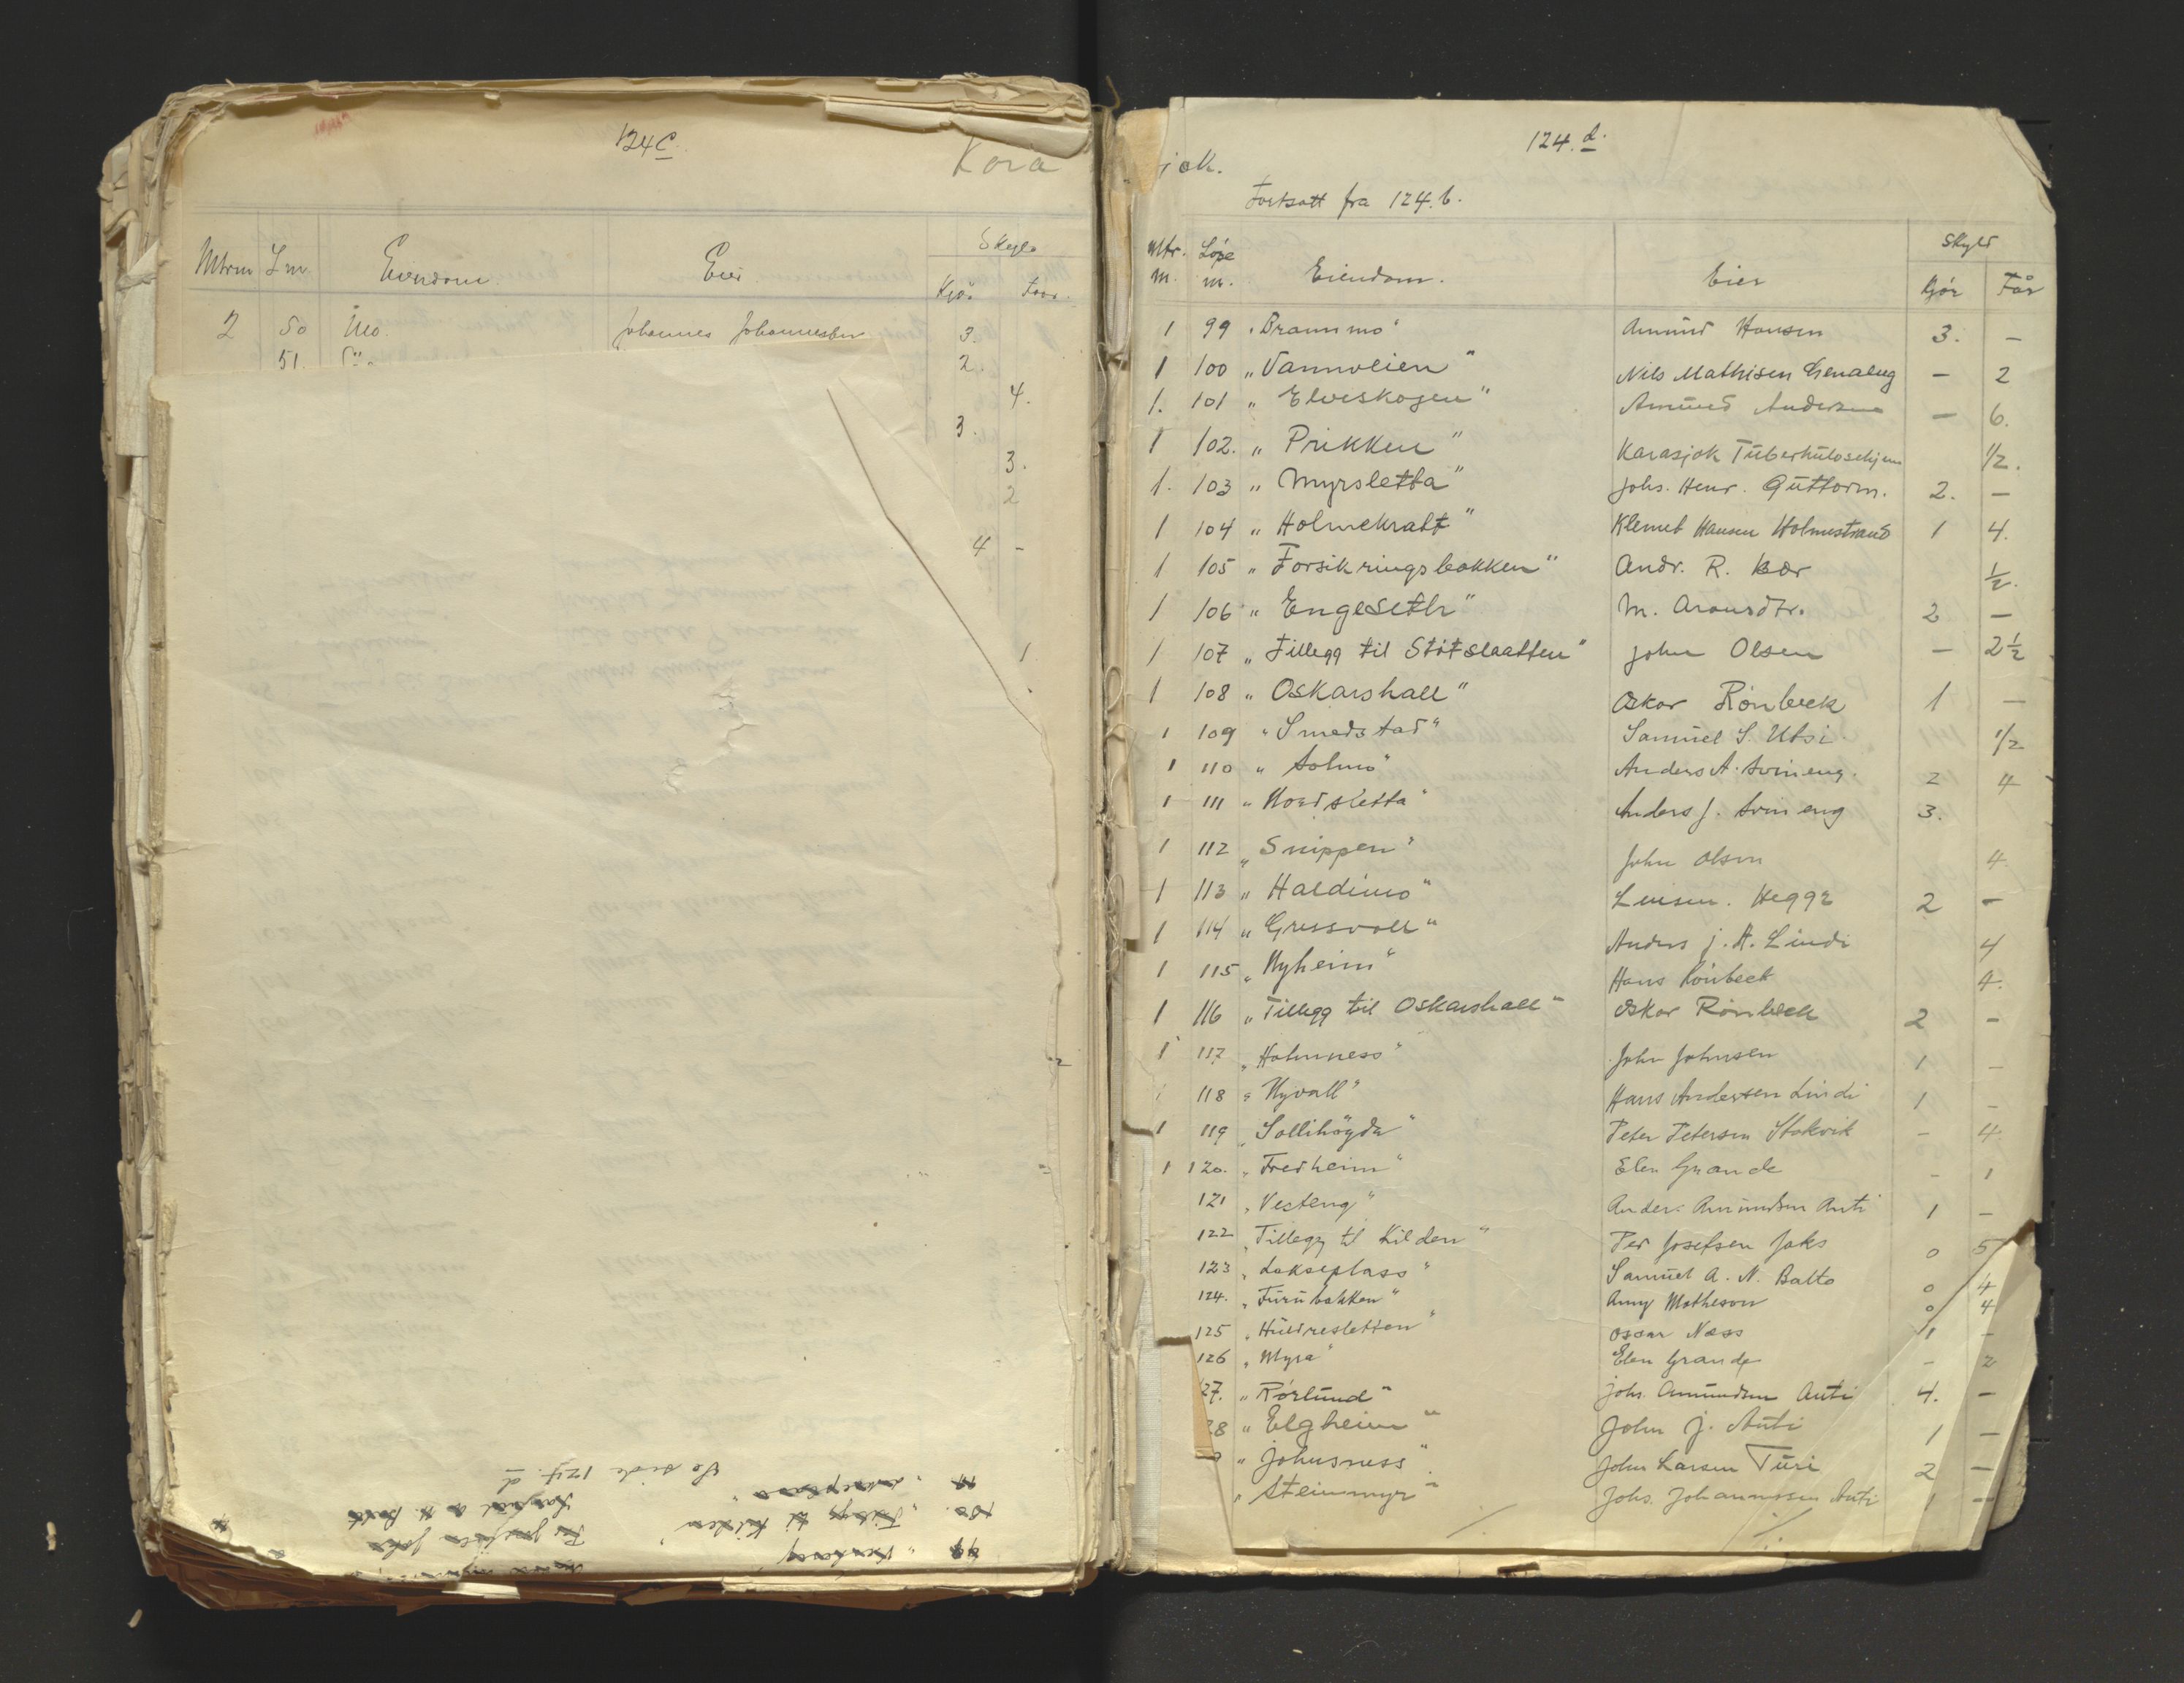 124 c.
Kara
Mtrnr Lnr. Eiendom. Eier Skyld
Kjør Faar.
2 50 Mo. Johannes Johannessen 3.
51. 2.
4.
3.
3.
2
4 -
1
Se side 124. d
124. d.
jok.
Fortsatt fra 124. b.
Mtr. Löpe Skyld
nr. nr. Eiendom. Eier Kjør Får
1 99 "Brannmo" Amund Hansen 3. -
1 100 "Vannveien" Nils Mathisen - 2
1. 101 "Elveskogen" Amund Andersen - 6.
1 102. "Prikken" Karasjok Tüberkülosehjem 1/2.
1. 103 "Myrsletta" Johs. Henr. Guttorm. 2. -
1 104 "Holmekratt" Klemet Hansen Holmestrand 1 4.
1 105 "Forsikringsbakken" Andr. R. Bær 1/2.
1 106 "Engeseth" M. Aronsdtr. 2 -
1 107 "Tillegg til Stötslaatten" John Olsen - 2 1/2
1 108 "Oskarshall" Oskar Rönbeck 1 -
1 109 "Smedstad" Samuel S. Utsi 1/2
1 110 "Solmo" Anders A. Svineng. 2 4
1 111 "Nordsletta" Anders J. Svineng 3.
1 112 "Snippen" John Olsen 4
1 113 "Haldimo" Lensm. Hegge 2 -
1 114 "Gressvoll" Anders J. A. Lindi 4
1 115 "Nyheim" Hans Rönbeck 4.
1 116 "Tillegg til Oskarshall" Oskar Rönbeck 2 -
1 117 "Holmness" John Johnsen 1 -
118 "Nyvall" Hans Andersen Lindi 1 -
1 119 "Sollihögda" Peter Petersen Stokvik - 4
1 120. "Fredheim" Elen Grande - 1
121 "Vesteng" Anders Amundsen Anti 1 -
122 "Tillegg til Kilden" Per Josefsen Joks 0 5
123 "Lakseplass" Samuel A. N. Balto 0 4
124. "Furubakken" Amy Matheson 0 4
125 "Huldresletten" Oscar Næss 1 -
126 "Myra" Elen Grande - 2
27. "Rörlund" Johs. Amundsen Anti 4. -
28 "Elgheim" John J. Anti 1 -
9 "Johnsness" John Larsen Turi 2 -
"Steinmyr" Johs. Johannessen Anti 1 -